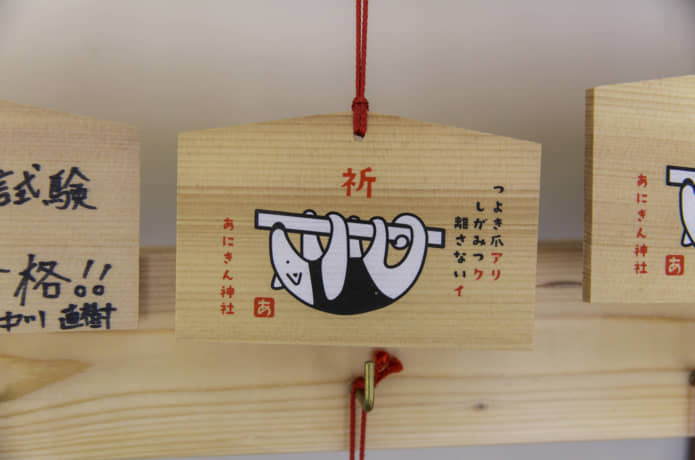 祈
つよき爪アリ
しがみつク
離さないイ
あにきん神社
あ
試験
格!!
中川 直樹
あにきん神社
あ